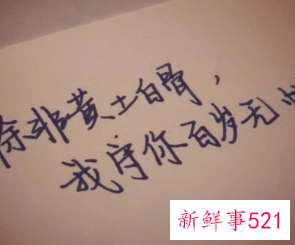 除非黄土白骨，
我守你百岁无
新鲜事521